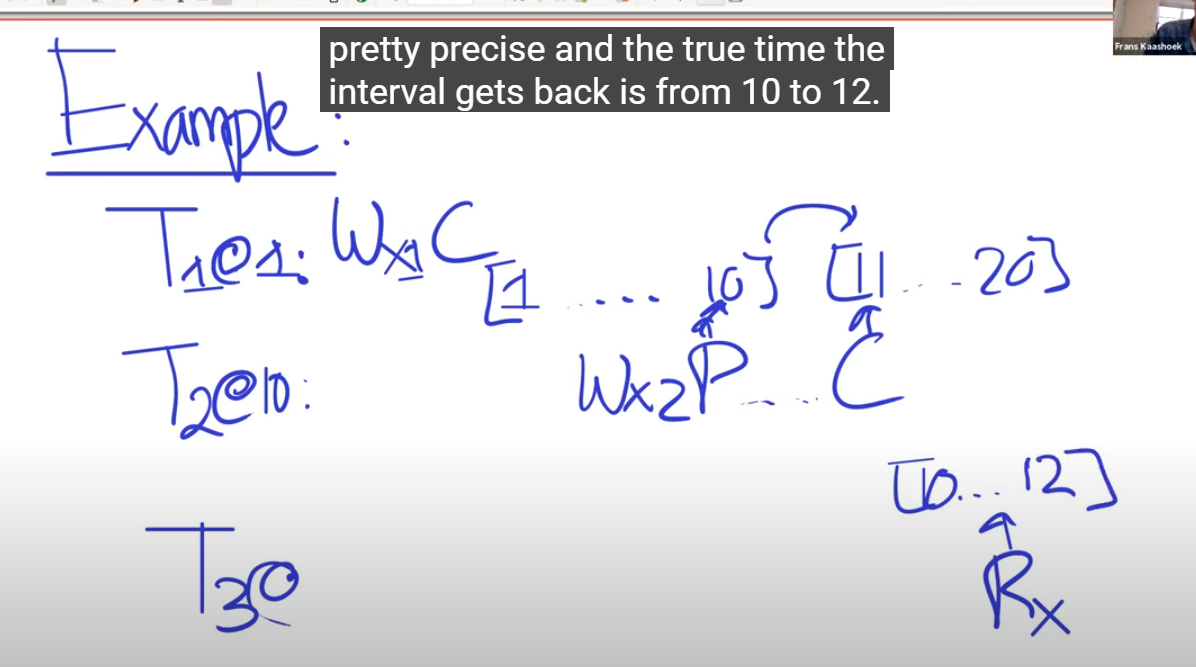 pretty precise and the true time the
interval gets back is from 10 to 12.
Frans Kaashoek
Example:
T1@1: Wx1 C
[1 ..... 10] [11 ... 20]
T2@10: Wx2 P ..... C
[10 ... 12]
T3@ Rx